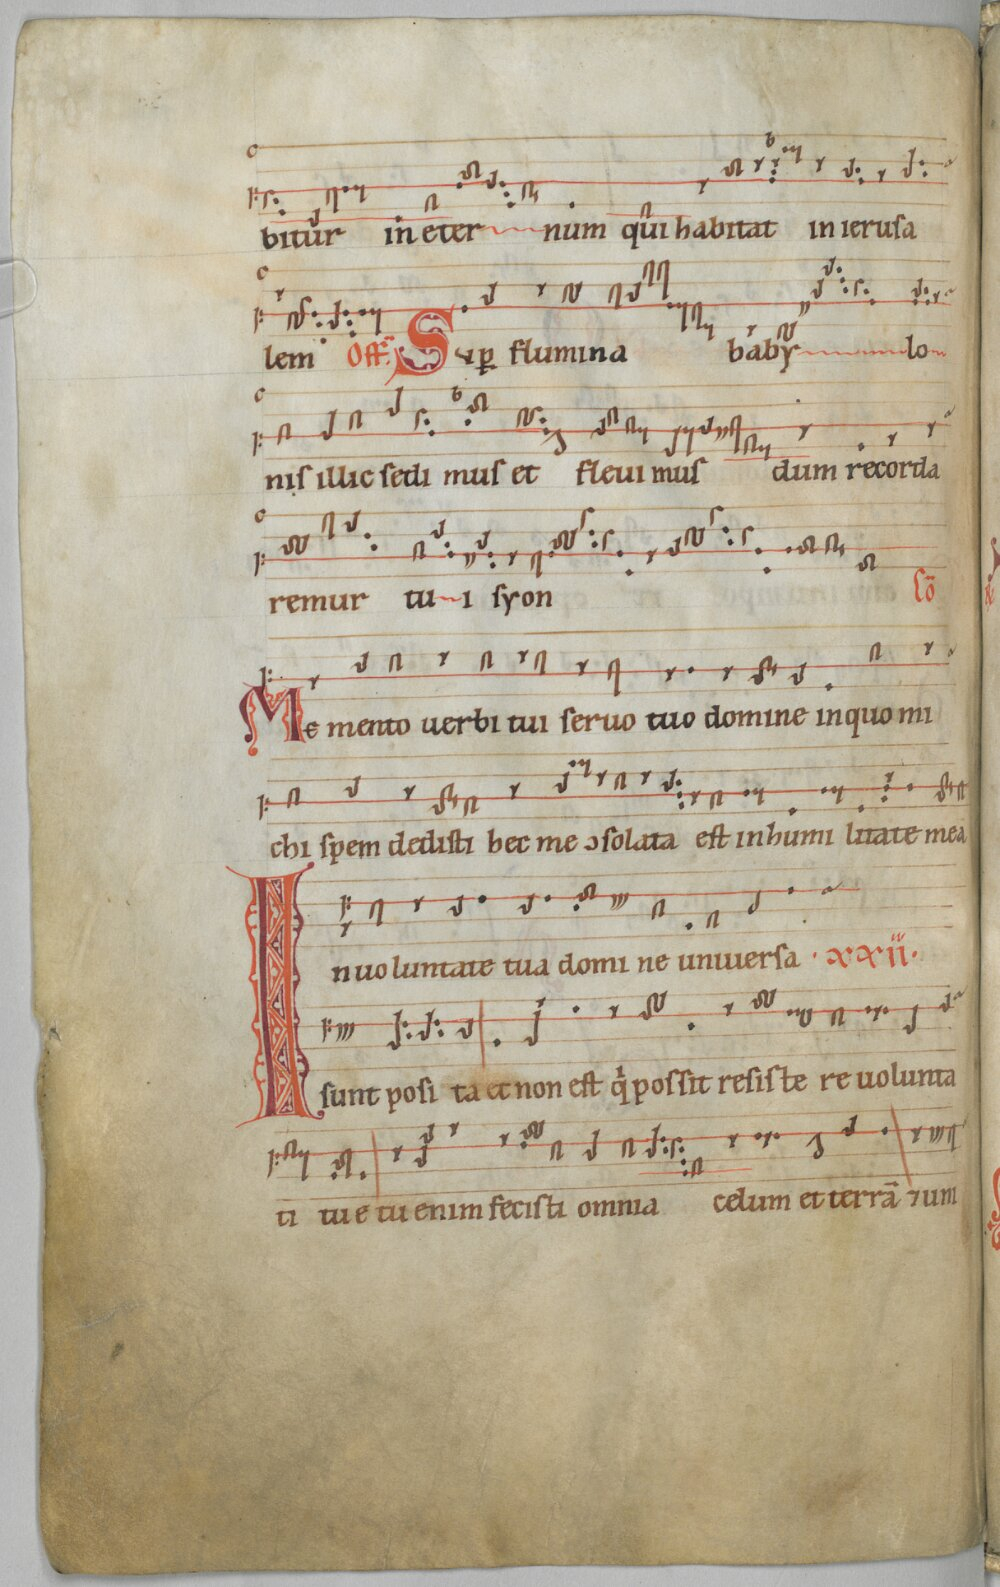 bitur in eter num qui habitat in ierusa
lem Off. Sup flumina baby lo
nis illic sedi mus et fleui mus dum recorda
remur tu i syon Cō
Me mento uerbi tui seruo tuo domine in quo mi
chi spem dedisti hec me ɔsolata est in humi litate mea
In uoluntate tua domi ne uniuersa · xxii ·
sunt posi ta et non est q possit resiste re uolunta
ti tu e tu enim fecisti omnia celum et terrā ⁊ um